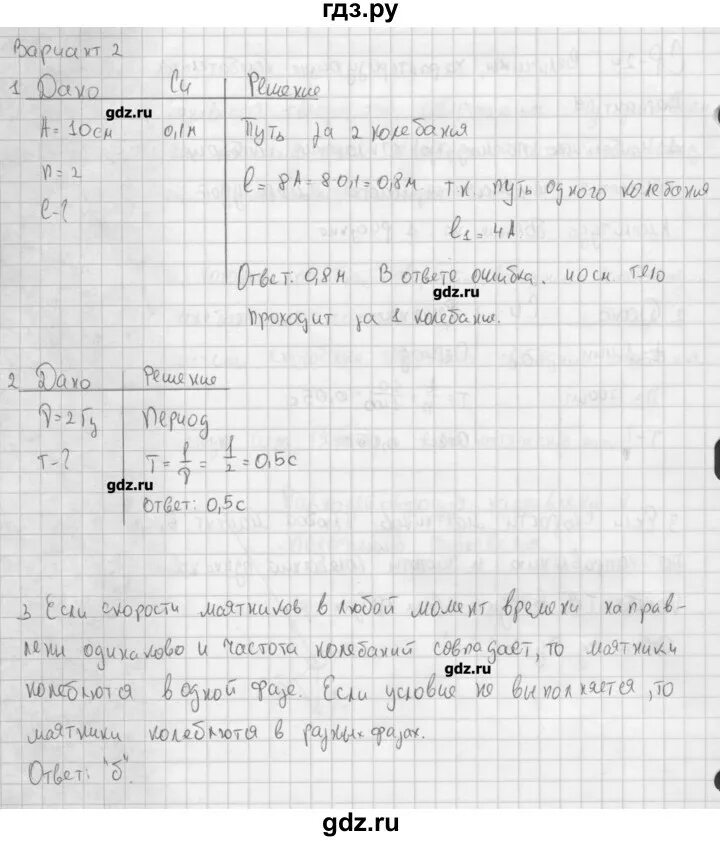 гдз.ру
Вариант 2
1 Дано Си Решение
gdz.ru
A = 10см 0,1м Путь за 2 колебания
n = 2
l = 8A = 8 0,1 = 0,8м т.к путь одного колебания
l - ?
l₁ = 4A
Ответ: 0,8м В ответе ошибка. 40см тело
gdz.ru
проходит за 1 колебание.
2 Дано Решение
ν = 2Гц Период
T - ? T = 1/ν = 1/2 = 0,5с
gdz.ru
Ответ: 0,5с
3 Если скорости маятников в любой момент времени направ-
лены одинаково и частота колебаний совпадает, то маятники
gdz.ru
колеблются в одной фазе. Если условие не выполняется, то
маятники колеблются в разных фазах.
Ответ: "б".
gdz.ru